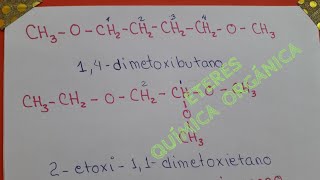 1 2 3 4
CH₃-O-CH₂-CH₂-CH₂-CH₂-O-CH₃
1,4-dimetoxibutano
2 1
CH₃-CH₂-O-CH₂-CH-O-CH₃
O
CH₃
ÉTERES
QUÍMICA ORGÂNICA
2-etoxi-1,1-dimetoxietano